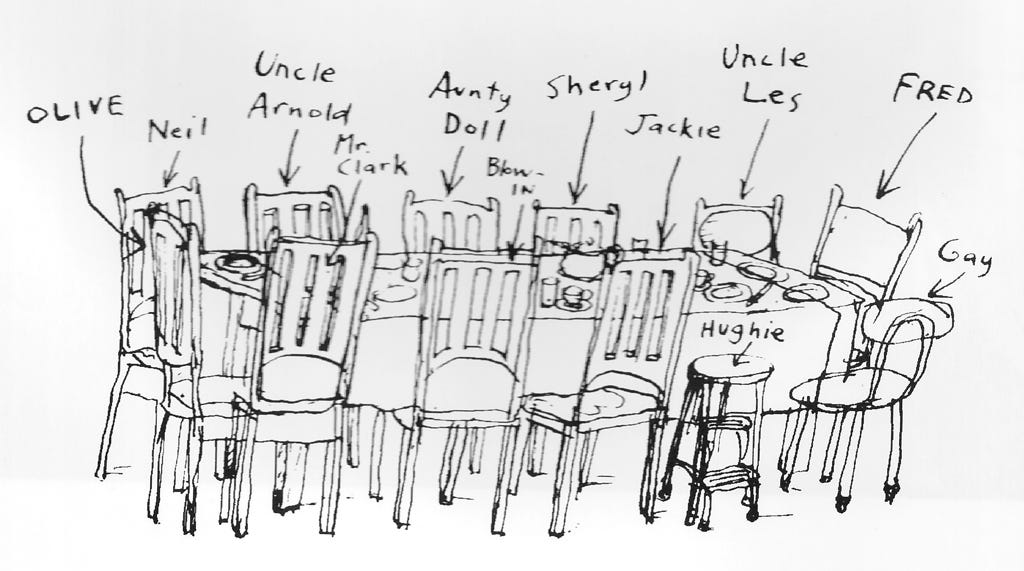 OLIVE
Neil
Uncle
Arnold
Mr.
Clark
Aunty
Doll
Blow-
IN
Sheryl
Jackie
Uncle
Les
FRED
Gay
Hughie